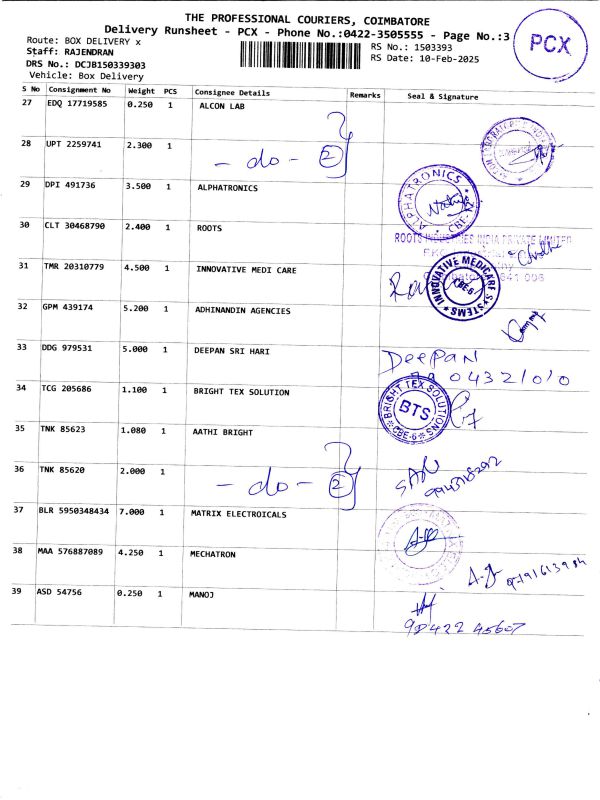 THE PROFESSIONAL COURIERS, COIMBATORE
Delivery Runsheet - PCX - Phone No.:0422-3505555 - Page No.:3
PCX
Route: BOX DELIVERY x
Staff: RAJENDRAN
DRS No.: DCJB150339303
Vehicle: Box Delivery
RS No.: 1503393
RS Date: 10-Feb-2025
S No Consignment No Weight PCS Consignee Details Remarks Seal & Signature
27 EDQ 17719585 0.250 1 ALCON LAB
28 UPT 2259741 2.300 1 - do - 2
29 DPI 491736 3.500 1 ALPHATRONICS
ALPHATRONICS CBE-
30 CLT 30468790 2.400 1 ROOTS
ROOTS INDUSTRIES INDIA PRIVATE LIMITED
31 TMR 20310779 4.500 1 INNOVATIVE MEDI CARE
INNOVATIVE MEDICARE SYSTEMS CBE-6
32 GPM 439174 5.200 1 ADHINANDIN AGENCIES
33 DDG 979531 5.000 1 DEEPAN SRI HARI
DEEPAN
34 TCG 205686 1.100 1 BRIGHT TEX SOLUTION
BRIGHT TEX SOLUTIONS BTS CBE-6
35 TNK 85623 1.080 1 AATHI BRIGHT
36 TNK 85620 2.000 1 - do - 2
37 BLR 5950348434 7.000 1 MATRIX ELECTROICALS
38 MAA 576887089 4.250 1 MECHATRON
39 ASD 54756 0.250 1 MANOJ
90422 45607